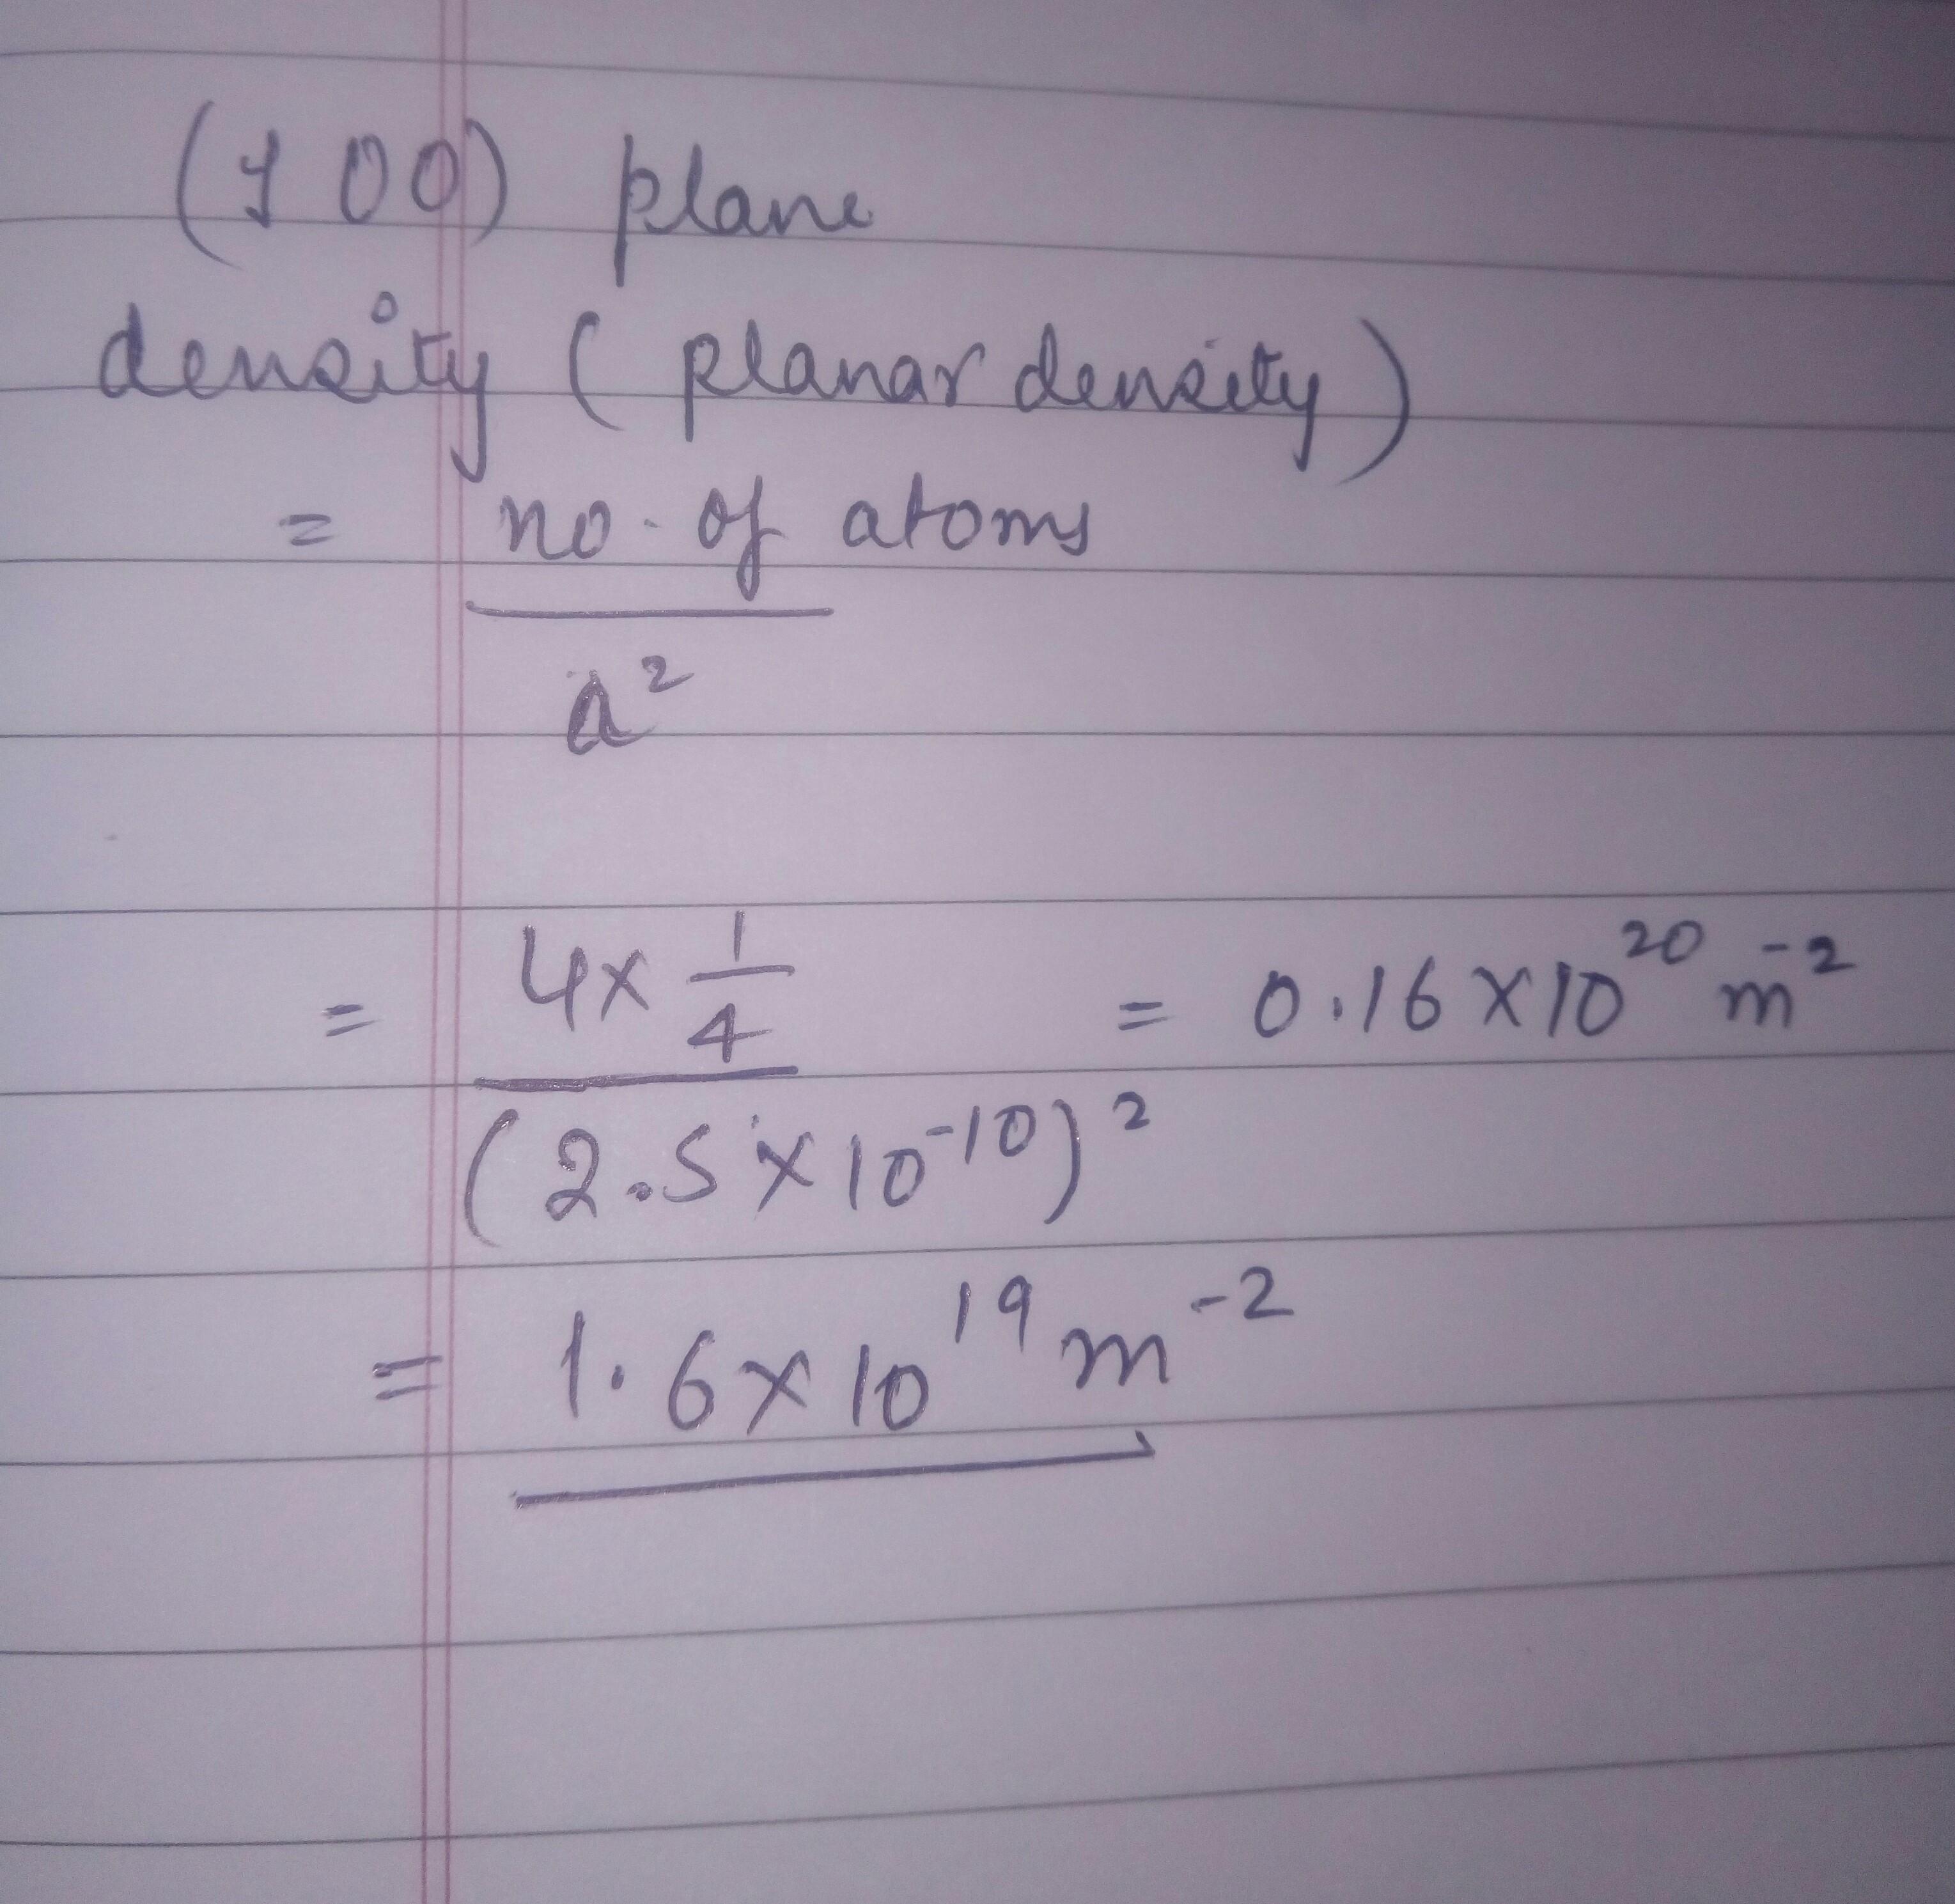 (100) plane
density (planar density)
= no. of atoms
a²
= 4 × 1/4 = 0.16 × 10²⁰ m⁻²
(2.5 × 10⁻¹⁰)²
= 1.6 × 10¹⁹ m⁻²